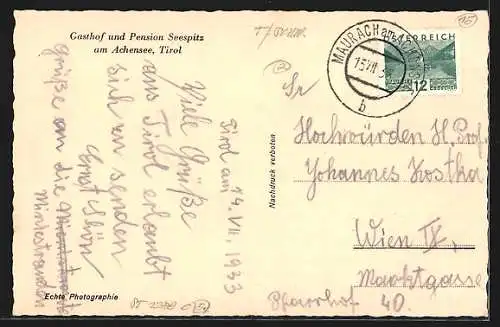 Gasthof und Pension Seespitz
am Achensee, Tirol
Tirol am 14. VII. 1933
Viele Grüße
aus Tirol erlaubt
sich zu senden
Ernst
Grüße an die
Ministranten
Echte Photographie
Nachdruck verboten
MAURACH am ACHENSEE
b
ÖSTERREICH
12
Sr
Hochwürden H. Prof.
Johannes Kostka
Wien IX.
Marktgasse
Pfarrhof 40.